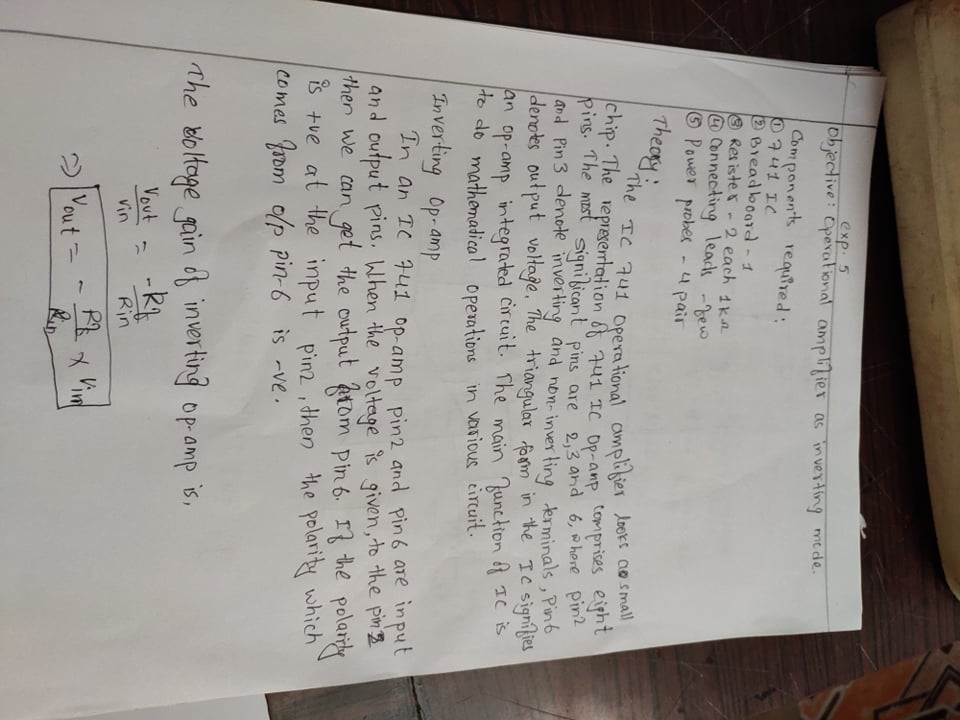 Exp. 5
Objective: Operational amplifier as inverting mode.
Components required:
① 741 IC
② Breadboard - 1
③ Resister - 2 each 1kΩ
④ Connecting leads - few
⑤ Power probes - 4 pair
Theory:
The IC 741 operational amplifier looks as small
chip. The representation of 741 IC op-amp comprises eight
pins. The most significant pins are 2,3 and 6, where pin2
and pin3 denote inverting and non-inverting terminals, pin6
denotes output voltage. The triangular form in the IC signifies
an op-amp integrated circuit. The main function of IC is
to do mathematical operations in various circuit.
Inverting Op-amp
In an IC 741 op-amp pin2 and pin6 are input
and output pins. When the voltage is given, to the pin2
then we can get the output from pin6. If the polarity
is +ve at the input pin2, then the polarity which
comes from o/p pin-6 is -ve.
The voltage gain of inverting op-amp is,
Vout/Vin = -Rf/Rin
=> Vout = - Rf/Rin × Vin